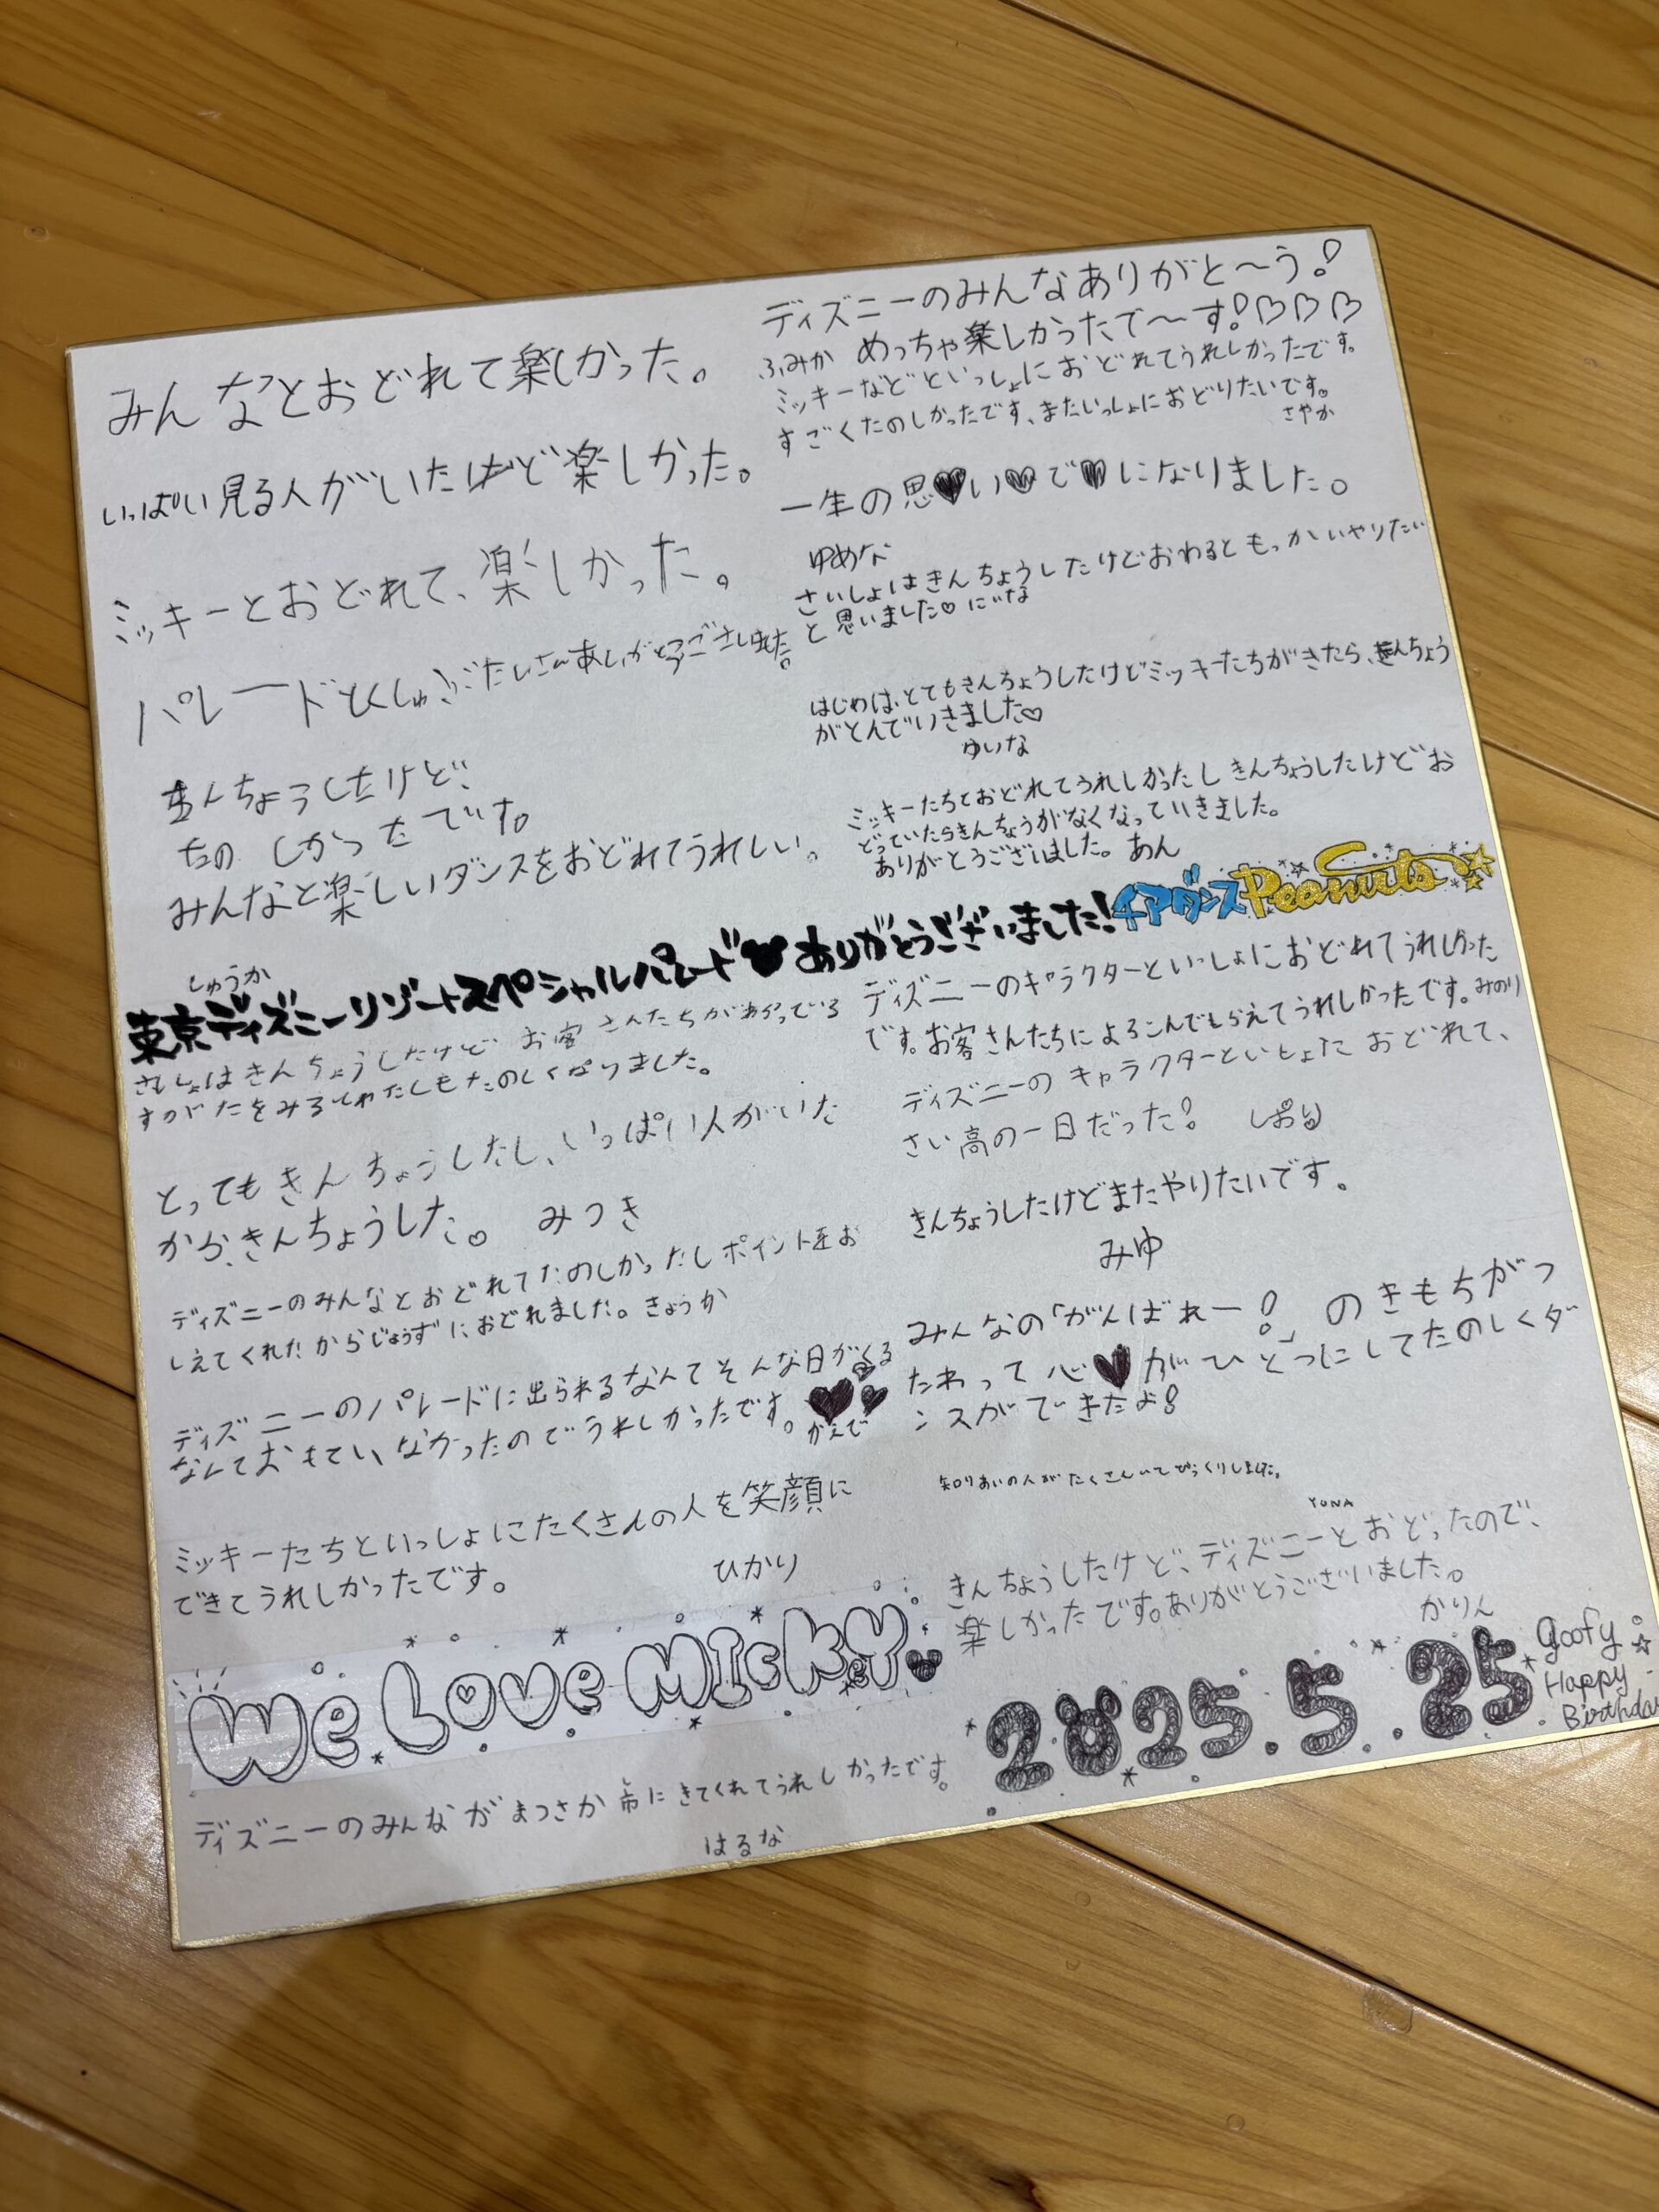 みんなとおどれて楽しかった。
いっぱい見る人がいたけど楽しかった。
ミッキーとおどれて、楽しかった。
パレードとくしゅ
きんちょうしたけど、
たのしかったです。
みんなと楽しいダンスをおどれてうれしい。
ディズニーのみんなありがと〜う!
ふみか めっちゃ楽しかったで〜す!♡♡♡
ミッキーなどといっしょにおどれてうれしかったです。
すごくたのしかったです、またいっしょにおどりたいです。
さやか
一生の思♥い♥で♥になりました。
ゆめな
さいしょはきんちょうしたけどおわるともっかいやりたい
と思いました♡ にいな
はじめは、とてもきんちょうしたけどミッキーたちがきたら、きんちょう
がとんでいきました♡
ゆいな
ミッキーたちとおどれてうれしかったしきんちょうしたけどお
どっていたらきんちょうがなくなっていきました。
ありがとうございました。あん
しゅうか
東京ディズニーリゾートスペシャルパレード ありがとうございました!チアダンスPeanuts
さいしょはきんちょうしたけど お客さんたちがわらっている
すがたをみるとわたしもたのしくなりました。
とってもきんちょうしたし、いっぱい人がいた
から、きんちょうした。 みつき
ディズニーのみんなとおどれてたのしかったしポイントをお
しえてくれたからじょうずにおどれました。きょうか
ディズニーのパレードに出られるなんてそんな日がくる
なんておもていなかったのでうれしかったです。♥♥
かえで
ミッキーたちといっしょにたくさんの人を笑顔に
できてうれしかったです。 ひかり
We Love MIcKEY
ディズニーのみんながまつさか市にきてくれてうれしかったです。
はるな
ディズニーのキャラクターといっしょにおどれてうれしかった
です。お客さんたちによろこんでもらえてうれしかったです。みのり
ディズニーのキャラクターといしょにおどれて、
さい高の一日だった! しおり
きんちょうしたけどまたやりたいです。
みゆ
みんなの「がんばれー!」のきもちがつ
たわって心♥がひとつにしてたのしくダ
ンスができたよ!
知りあいの人がたくさんいてびっくりしました。
YUNA
きんちょうしたけど、ディズニーとおどったので、
楽しかったです。ありがとうございました。
かりん
2025.5.25
goofy
Happy
Birthday